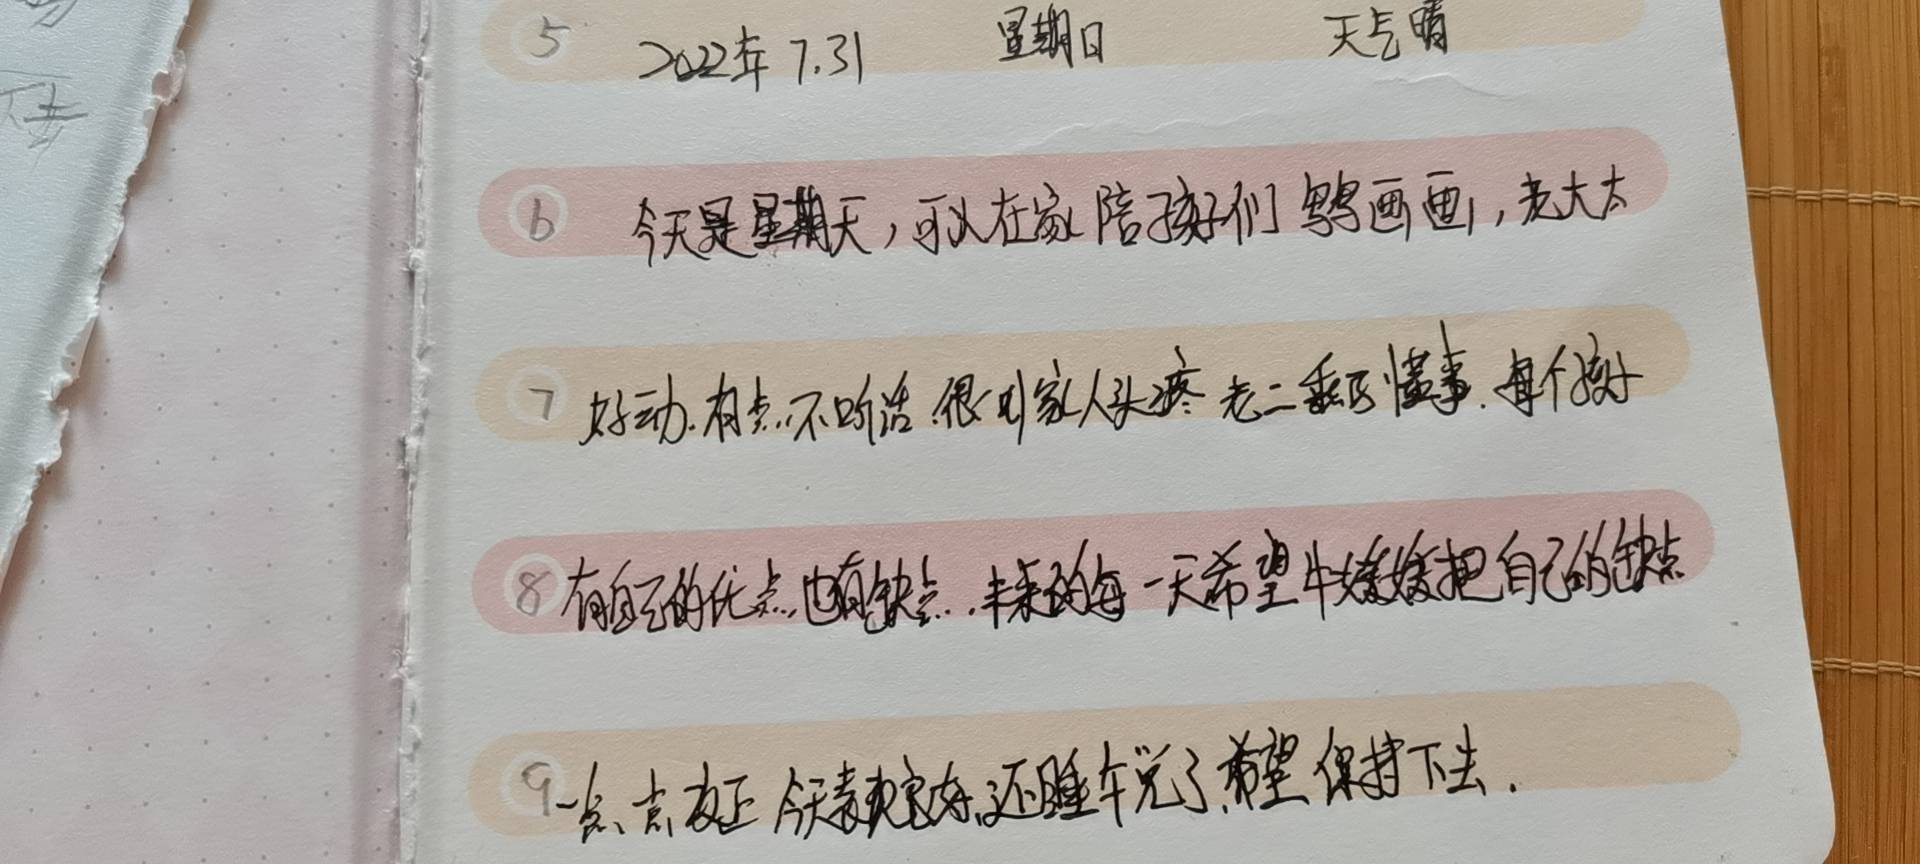 5 2022年 7.31 星期日 天气晴
6 今天是星期天，可以在家陪孩子们 画画，老大太
7 好动.有点不听话.很叫家人头疼 老二乖巧懂事.每个孩子
8 有自己的优点.也有缺点.未来的每一天希望牛媛媛把自己的缺点
9 一点、点改正 今天表现良好.还睡午觉了.希望保持下去.